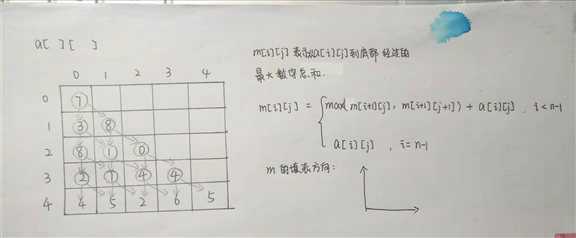 a[ ][ ]
0 1 2 3 4
0 7
1 3 8
2 8 1 0
3 2 7 4 4
4 4 5 2 6 5
m[i][j] 表示从a[i][j]到底部经过的
最大数字总和.
m[i][j] = { max( m[i+1][j], m[i+1][j+1] ) + a[i][j] , i < n-1
a[i][j] , i = n-1
m 的填表方向: